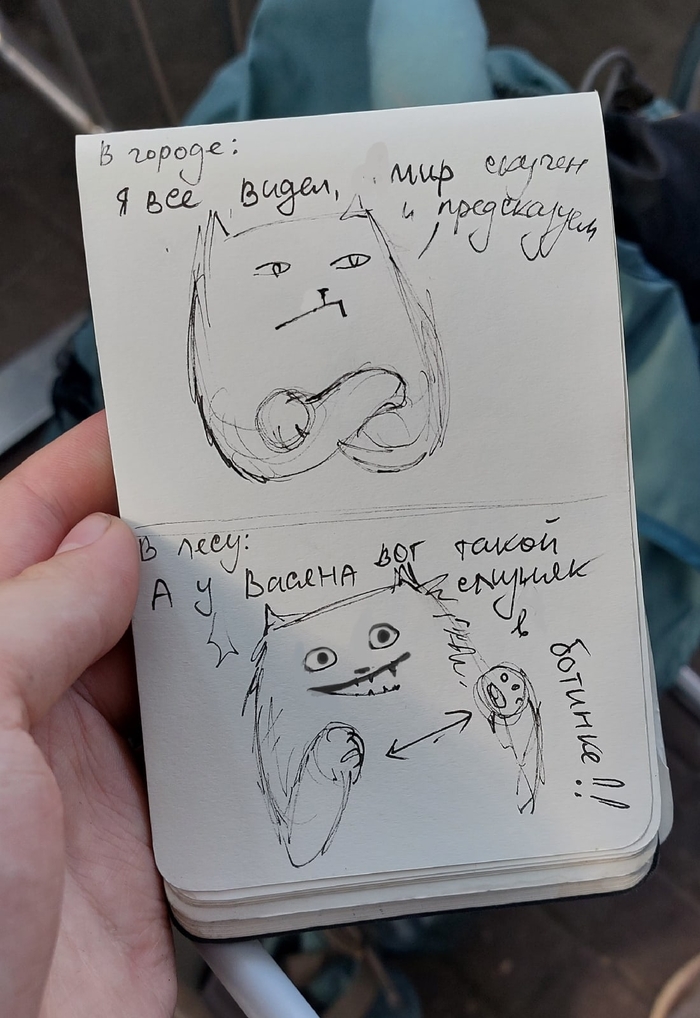 В городе:
Я все видел, мир скучен
и предсказуем
В лесу:
А у Васяна вот такой
слизняк
в ботинке!!